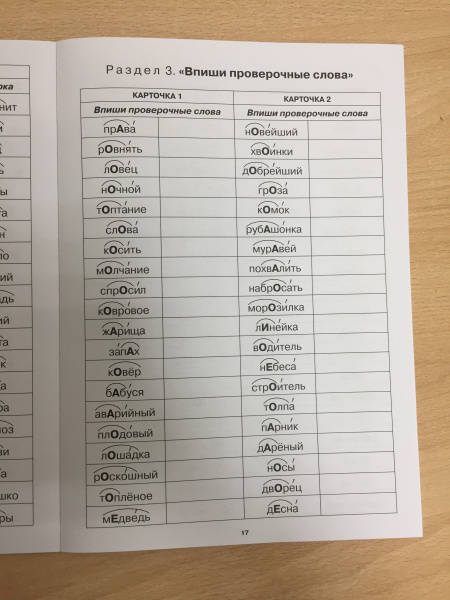 Раздел 3. «Впиши проверочные слова»
КАРТОЧКА 1 КАРТОЧКА 2
Впиши проверочные слова Впиши проверочные слова
прАва́ нОве́йший
рОвня́ть хвОи́нки
лОве́ц дОбре́йший
нОчно́й грОза́
тОпта́ние кОмо́к
слОва́ рубАшо́нка
кОси́ть мурАве́й
мОлча́ние похвАли́ть
спрОси́л набрОса́ть
кОвро́вое морОзи́лка
жАри́ща лИне́йка
за́пАх вОди́тель
кОвёр нЕбеса́
бАбу́ся стрОи́тель
авАри́йный тОлпа́
плОдо́вый пАрни́к
лОша́дка дАрёный
рОско́шный нОсы́
тОплёное двОре́ц
мЕдве́дь дЕсна́
17